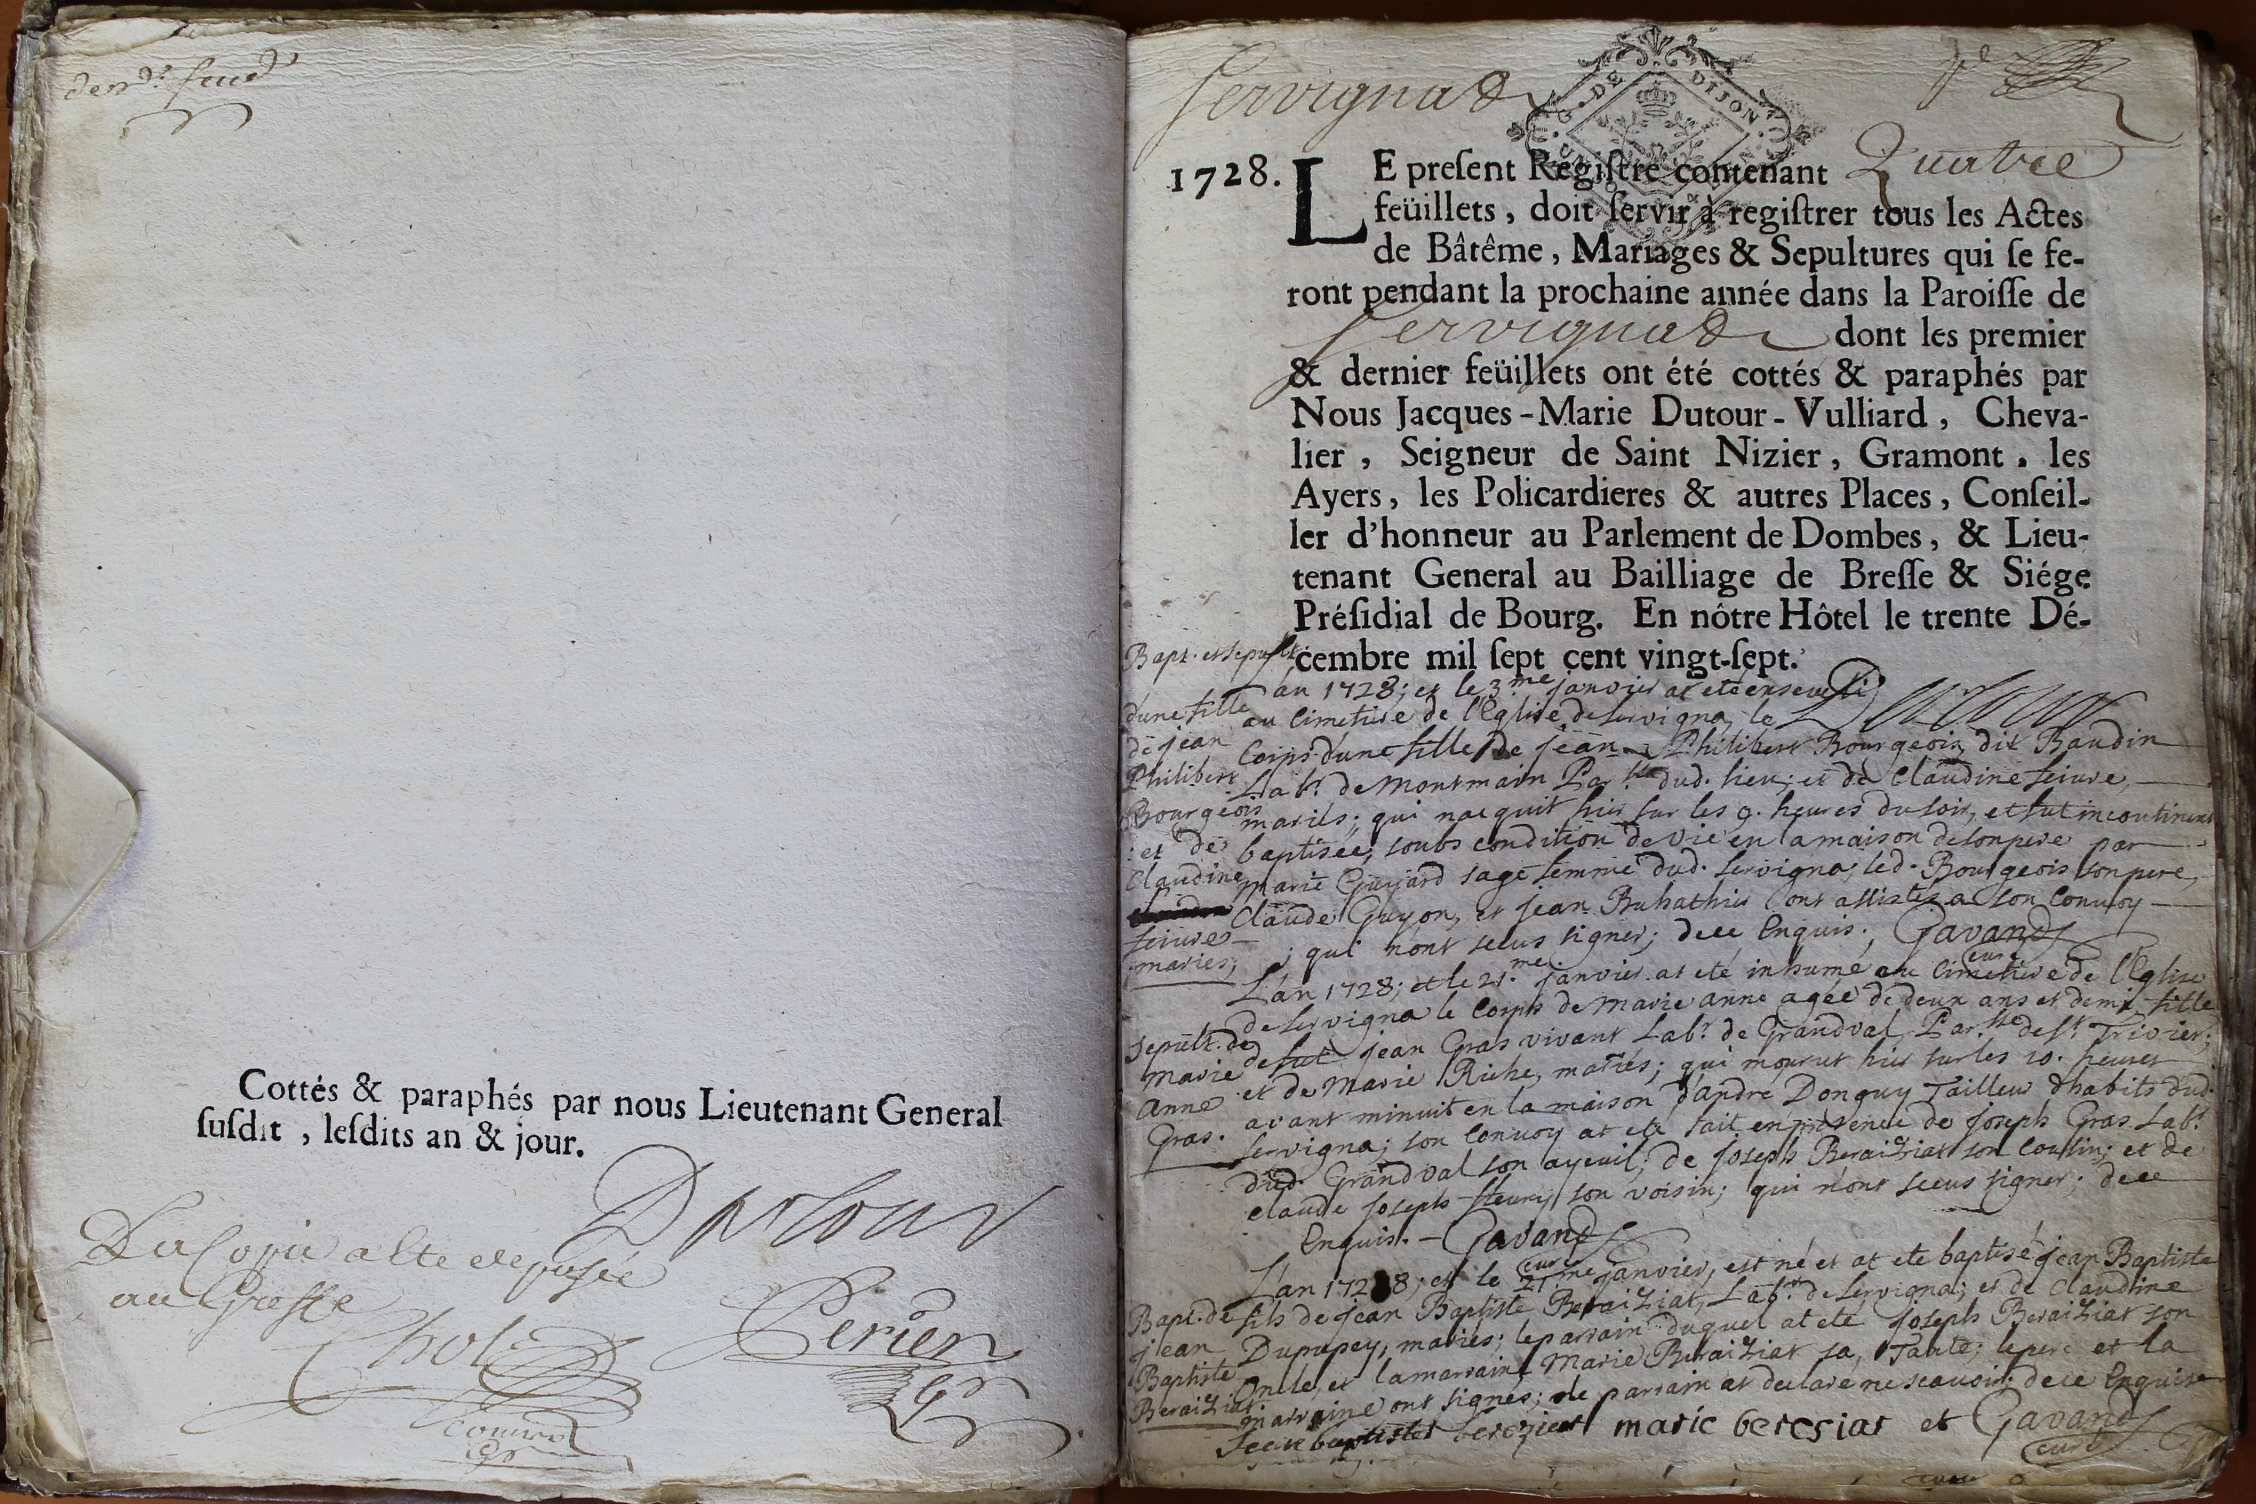 Cottés & paraphés par nous Lieutenant General
susdit, lesdits an & jour.
Dutour
La Copie a Ete deposée
au Greffe
Perier
Servignat
G. DE DIJON
1728. LE present Registre contenant Quatre
feüillets, doit servir à registrer tous les Actes
de Bâtême, Mariages & Sepultures qui se fe-
ront pendant la prochaine année dans la Paroisse de
Servignat dont les premier
& dernier feüillets ont été cottés & paraphés par
Nous Jacques-Marie Dutour-Vulliard, Cheva-
lier, Seigneur de Saint Nizier, Gramont, les
Ayers, les Policardieres & autres Places, Conseil-
ler d'honneur au Parlement de Dombes, & Lieu-
tenant General au Bailliage de Bresse & Siége
Présidial de Bourg. En nôtre Hôtel le trente Dé-
cembre mil sept cent vingt-sept.
Dutour
Bapt. et sepult.
d'une fille
de jean
Philibert
Bourgeois
et de
Claudine
feivre
maries;
L'an 1728; et le 3.me janvier at eté enseveli
au Cimetiere de l'Eglise de Servigna, le
Corps d'une fille de jean Philibert Bourgeois dit Baudin
Lab.r de Montmain Par.sse dud. lieu; et de Claudine feivre,
mariés; qui nacquit hier sur les 9. heures du soir, et fut incontinent
baptisée, soubs condition de vie en la maison de son pere par
Marie Guyard sage femme dud. Servigna; led. Bourgeois son pere,
Claude Guyon, et jean Buhathier ont assistez a son Convoy
; qui n'ont sceus signer; dece Enquis. Gavand
curé
Sepult. de
Marie
Anne
Gras.
L'an 1728; et le 21.me janvier at eté inhumé au Cimetiere de l'Eglise
de Servigna le Corps de Marie Anne agée de deux ans et demi, fille
de fut jean Gras vivant Lab.r de Grandval, Par.sse de S.t Trivier;
et de Marie Riche, mariés; qui mourut hier sur les 10. heures
avant minuit en la maison d'andre Donguy Tailleur d'habits dud.
Servigna; son Convoy at eté fait en presence de Joseph Gras Lab.r
dud. Grandval son ayeuil; de Joseph Beraiziat son Cousin; et de
Claude Joseph fleury son voisin; qui n'ont sceus signer; dece
Enquis. - Gavand
curé
Bapt. de
jean
Baptiste
Beraiziat
L'an 1728; et le 21.me janvier, est né et at eté baptisé jean Baptiste
fils de jean Baptiste Beraiziat, Lab.r de Servigna; et de Claudine
Dupupey, mariés; le parrain duquel at eté Joseph Beraiziat son
Oncle, et la marraine Marie Beraiziat sa Tante; le pere et la
marraine ont signés; le parrain at declaré ne scavoir; dece Enquis
Jean baptiste bereziat marie beresiat et Gavand
curé